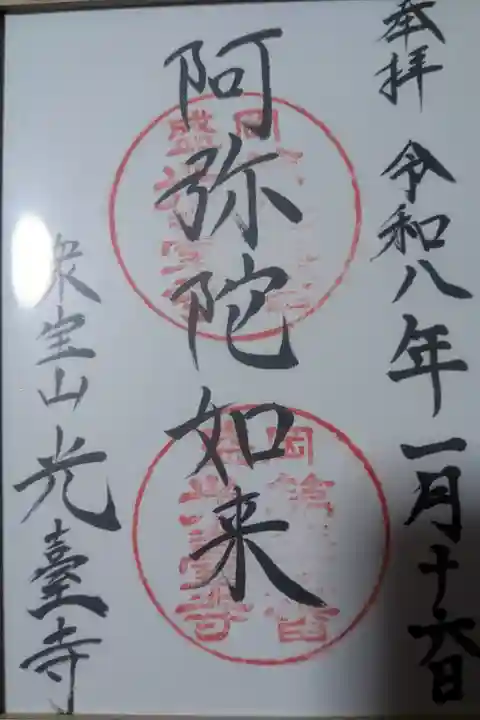 奉拝 令和八年一月十六日
阿弥陀如来
衆宝山 光臺寺